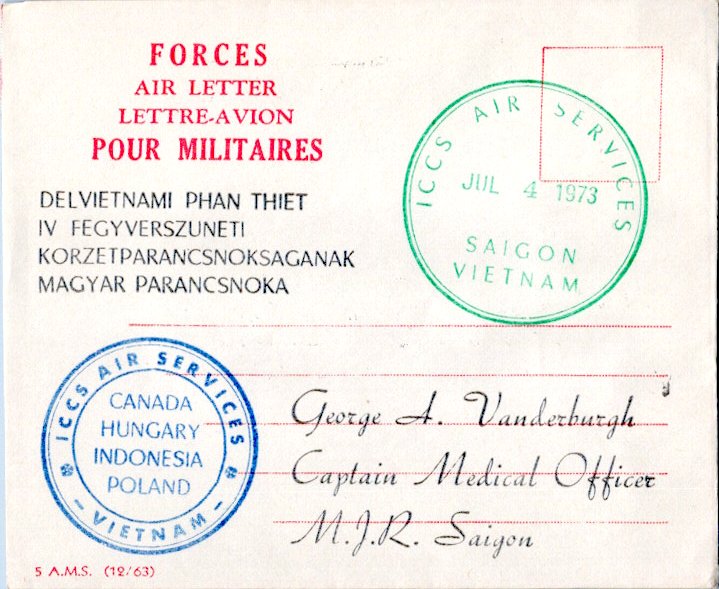 FORCES
AIR LETTER
LETTRE-AVION
POUR MILITAIRES
DELVIETNAMI PHAN THIET
IV FEGYVERSZUNETI
KORZETPARANCSNOKSAGANAK
MAGYAR PARANCSNOKA
ICCS AIR SERVICES
JUL 4 1973
SAIGON
VIETNAM
ICCS AIR SERVICES
CANADA
HUNGARY
INDONESIA
POLAND
- VIETNAM -
George A. Vanderburgh
Captain Medical Officer
M.J.R. Saigon
5 A.M.S. (12/63)